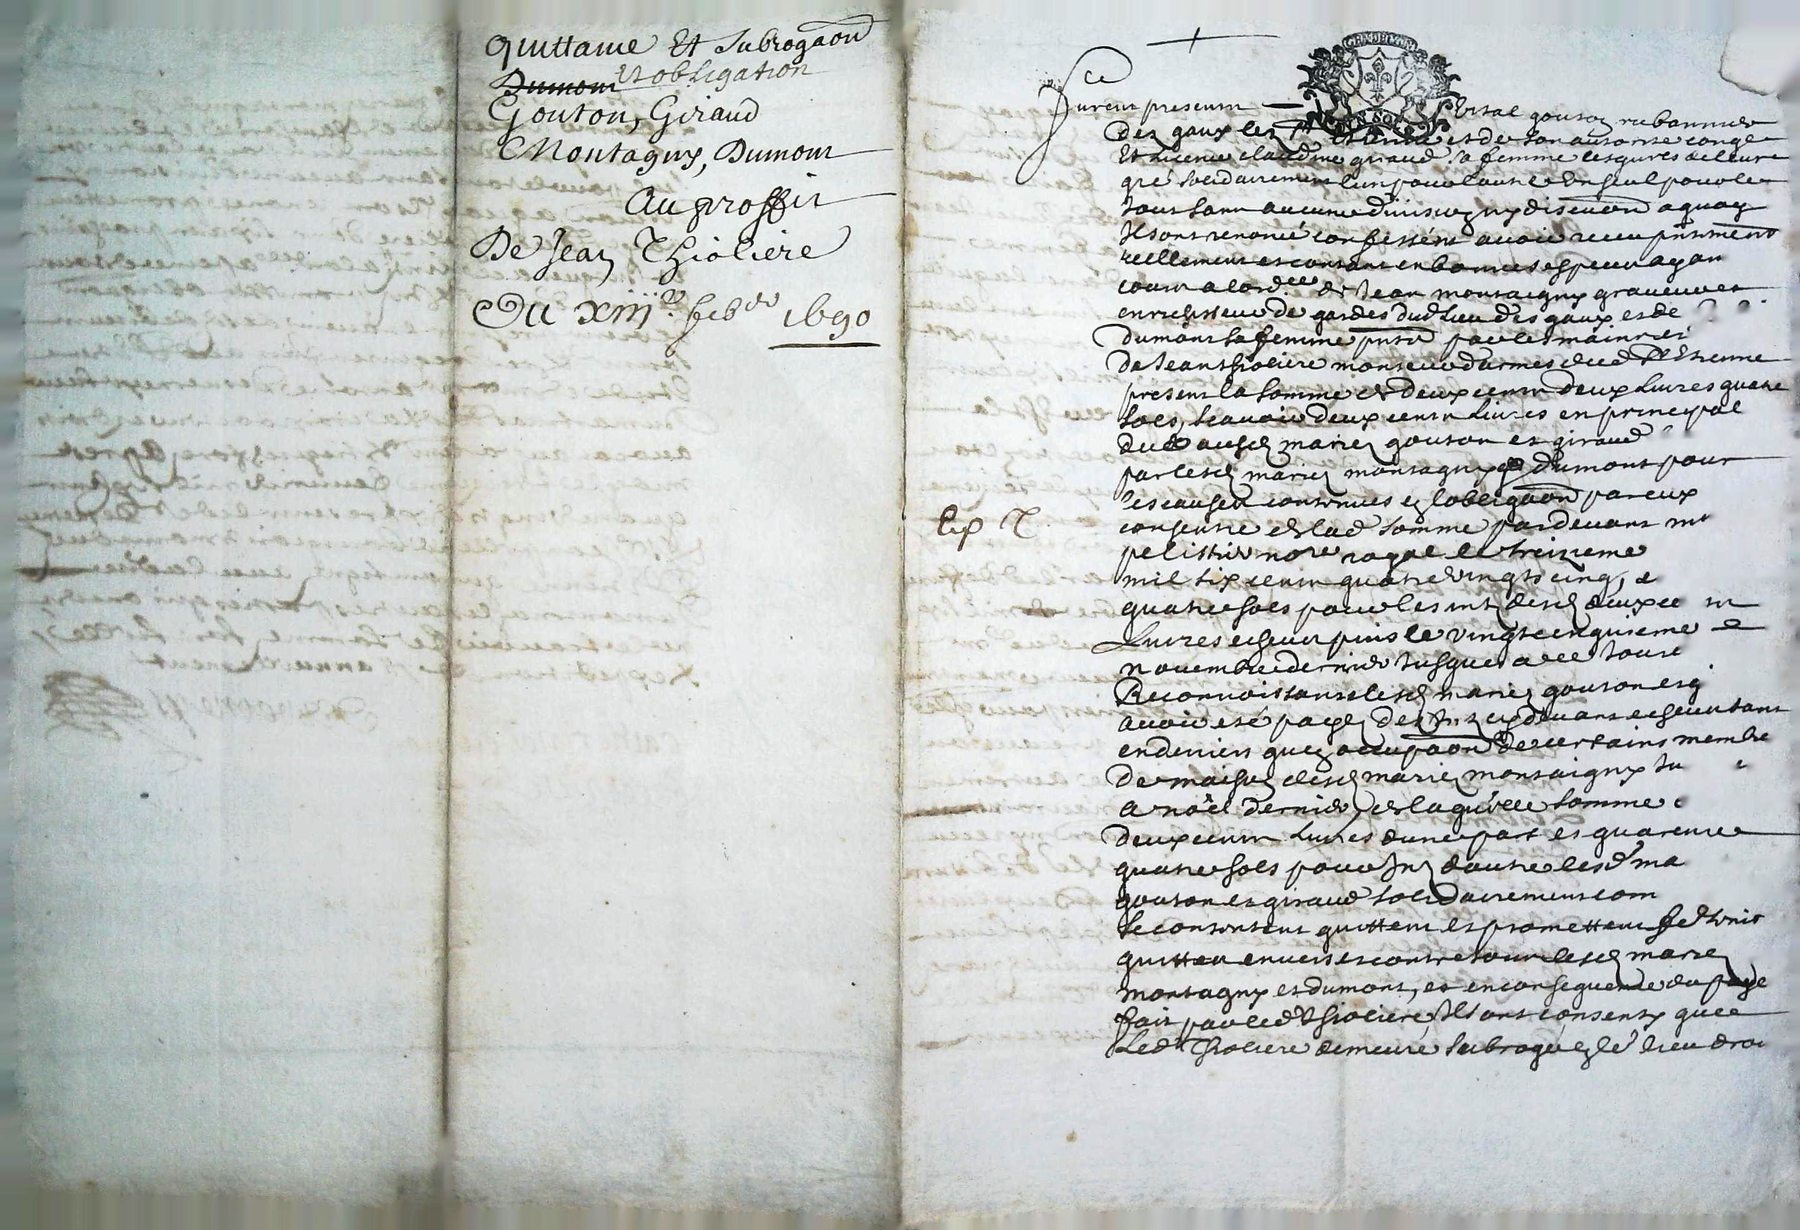 quittance Et subrogãon
Dumont Et obligation
Gouton, Giraud
Montagny, Dumont
Au proffit
De Jean Thioliere
Du xiiij.e febver 1690
furent presentz Vital gouton rubannier
Des gaux les St Estienne et de son autorite conge
Et licence claudine giraud sa femme lesquels de leur
gré solidairement l'un pour l'autre Un seul pour le
tout sans aucune division ny discution a quoy
Ils ont renoncé confessent avoir receu pntment
reellement et contant en bonnes especes ayan
cours a lordce de Jean montaigny graveur et
enrichisseur de gardes dud lieu des gaux et de
dumont sa femme par les mains et
De Jean thioliere monteur d'armes dud St Estienne
present la somme de deux centz deux Livres quatre
sols, scavoir deux centz Livres en principal
du ausd mariez gouton et giraud
par lesd mariez montagny et dumont pour
les causes contenues en l'obligãon par eux
consentie de lad somme pardevant me
pelissier nore royal le treizieme
mil six centz quatre vingts cinq, &
quarente sols pour les intz desd deux ce nt
Livres escheus puis le vingt cinquieme
novembre dernier Jusques a ce Jour
Reconnoissans lesd mariez gouton et g
avoir esté payez des Intz cy devant escheus tant
en deniers que occupãon de certains membre
De maison desd mariez montaigny Ju
a noël dernier de laquelle somme
Deux centz Livres dune part et quarente
quatre sols pour Intz dautre lesd ma
gouton et giraud solidairement com
se contentent quittent et promettent fe tenir
quittes envers et contre tous lesd mariez
montagny et dumont, et en consequence du paye
fait par led thioliere Ils ont consenty que
Led Thioliere demeure subrogé en le lieu droi